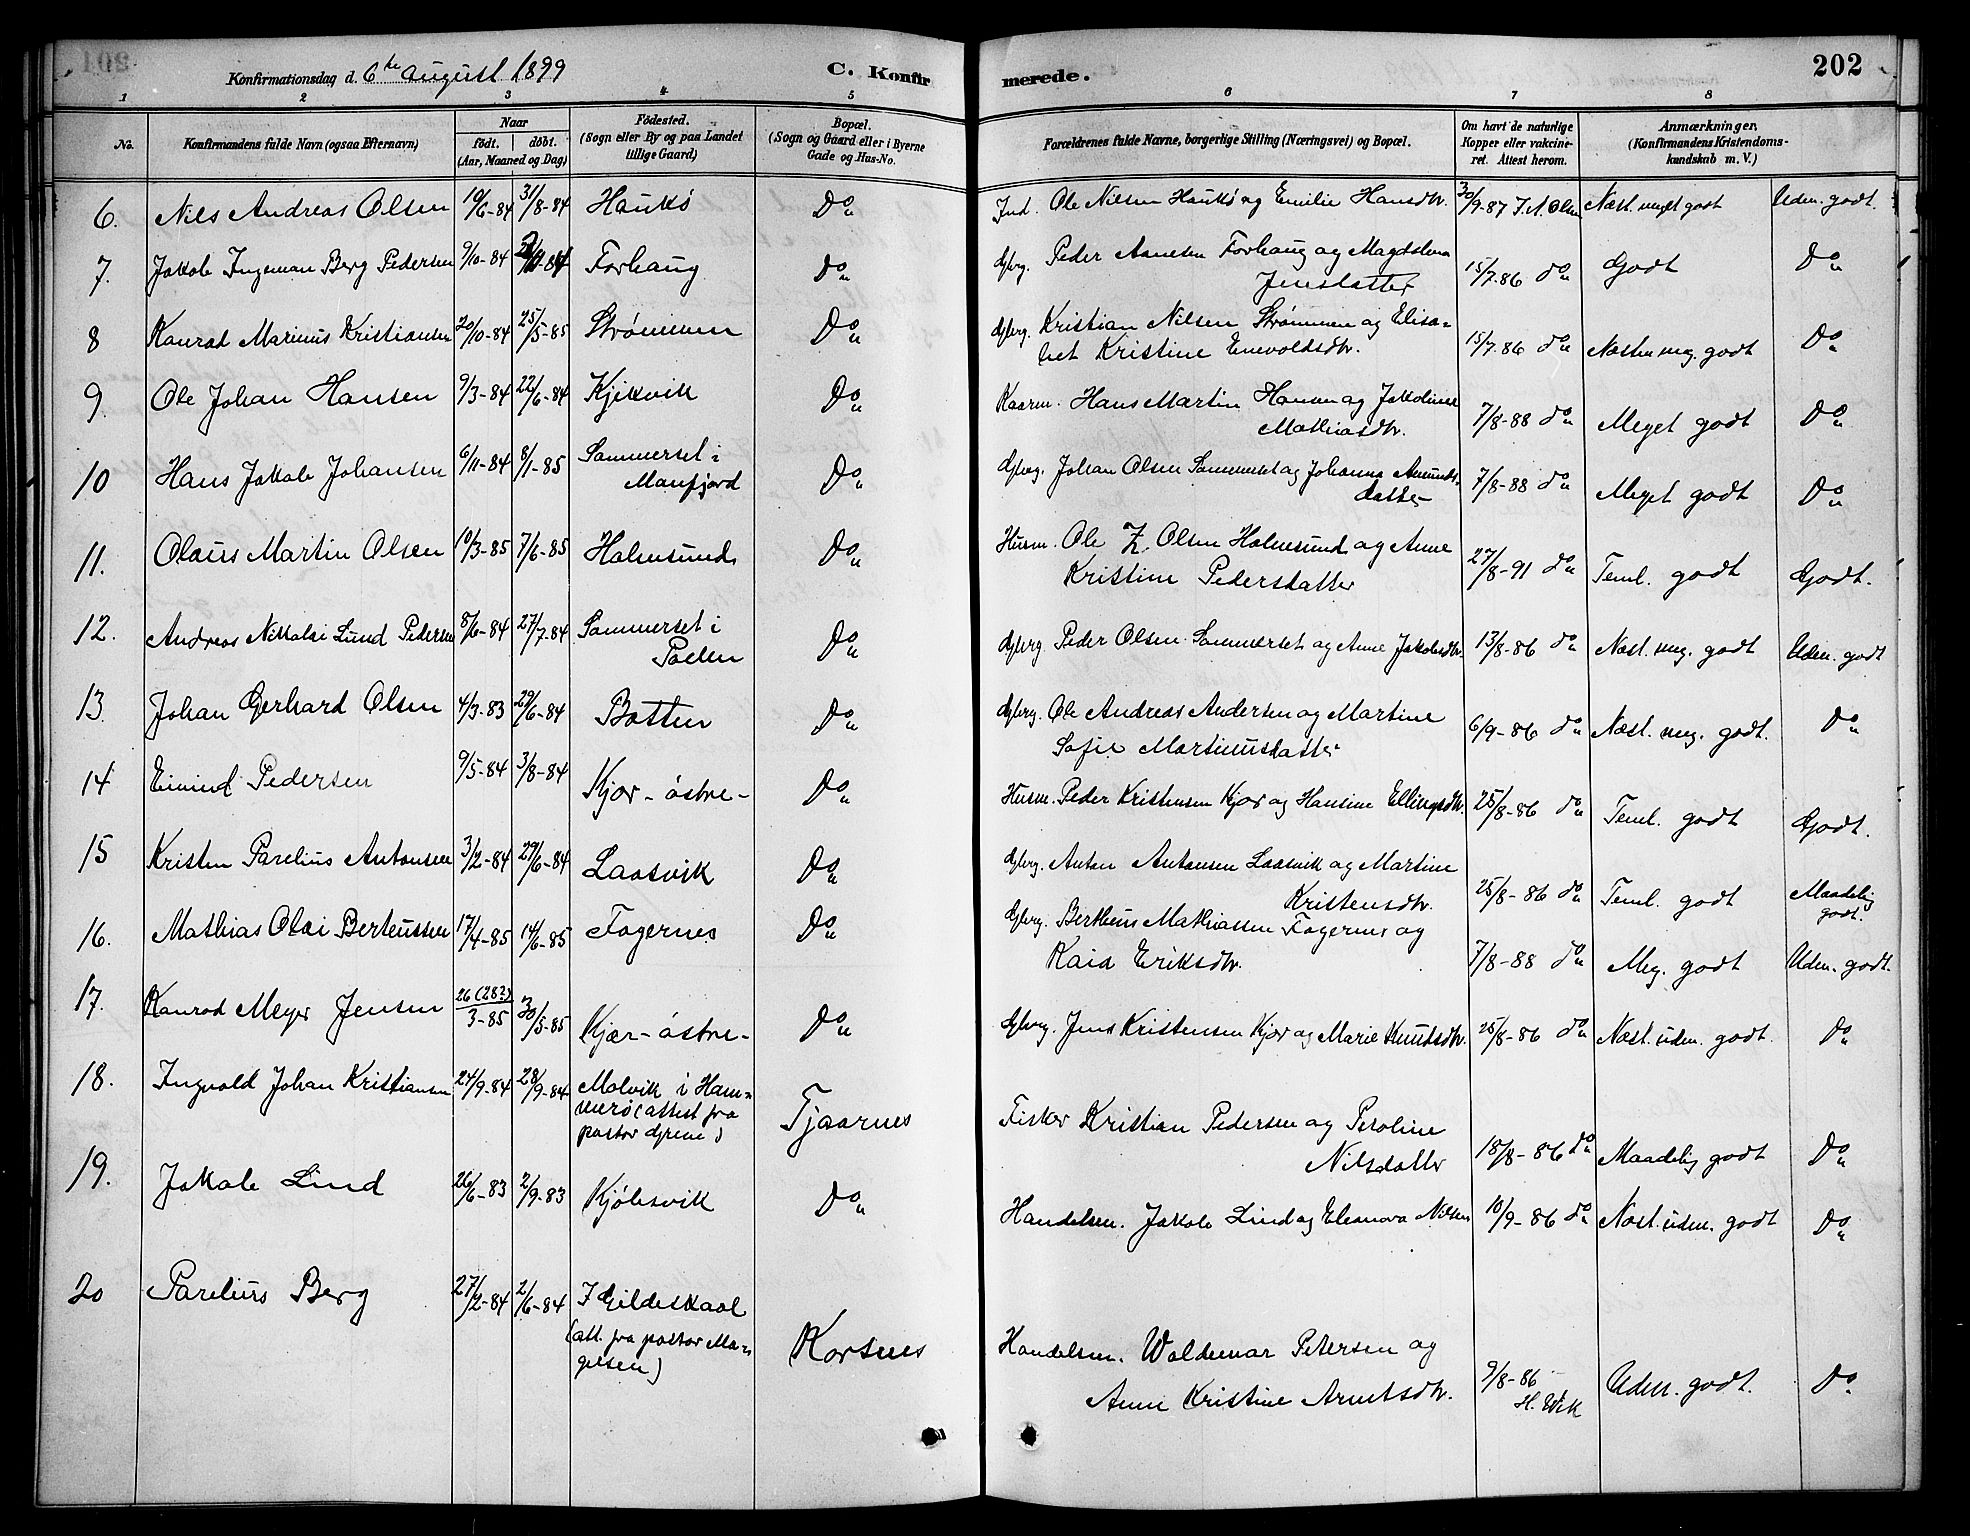 Konfirmationsdag d. 6te august 1899
C. Konfirmerede.
202
1 2 3 4 5 6 7 8
No.
Konfirmandens fulde Navn (ogsaa Efternavn)
Naar
født. døbt.
(Aar, Maaned og Dag)
Fødested.
(Sogn eller By og paa Landet
tillige Gaard)
Bopæl.
(Sogn og Gaard eller i Byerne
Gade og Hus-No.
Forældrenes fulde Navne, borgerlige Stilling (Næringsvei) og Bopæl.
Om havt de naturlige
Kopper eller vakcine-
ret. Attest herom.
Anmærkninger.
(Konfirmandens Kristendoms-
kundskab m. V.)
6. Nils Andreas Olsen 10/6-84 31/8-84 Haukö Do Ind. Ole Nilsen Haukö og Emilie Hansdtr. 30/9-87 J. A. Olsen Næst. meget godt Uden. godt.
7. Jakob Ingeman Berg Pedersen 9/10-84 Forhaug Do Gbrg. Peder Forhaug og Magdalena
Jensdatter 15/7-86 do Godt Do
8 Konrad Marius Kristiansen 20/10-84 25/5-85 Strömmen Do Gbrg. Kristian Nilsen Strömmen og Elisa-
bet Kristine Enevoldsdtr. 15/7-86 do Næsten meg. godt Do
9. Ole Johan Hansen 9/3-84 22/6-84 Kjikvik Do Kaarm. Hans Martin Hansen og Jakobine
Mathiasdtr. 7/8-88 do Meget godt Do
10 Hans Jakob Johansen 6/11-84 8/1-85 Sommerset i
Manfjord Do Gbrg. Johan Olsen Sommerset og Johanna Amunds-
datter 7/8-88 do Meget godt Do
11. Olaus Martin Olsen 10/3-85 7/6-85 Holmsund Do Husm. Ole Z. Olsen Holmsund og Anne
Kristine Pedersdatter 27/8-91 do Teml. godt Godt.
12. Andreas Nikolai Lund Pedersen 8/6-84 27/7-84 Sommerset i
Pollen Do Gbrg Peder Olsen Sommerset og Anne Jakobsdtr. 13/8-86 do Næst. meg. godt Uden. godt
13. Johan Gerhard Olsen 4/3-83 29/6-84 Botten Do Gbrg. Ole Andreas Andersen og Martine
Sofie Martinusdatter 6/9-86 do Næst. meg. godt. Do
14 Eivind Pedersen 9/5-84 3/8-84 Kjör-östre- Do Husm. Peder Kristensen Kjör og Hansine Ellingsdtr. 25/8-86 do Teml. godt Godt.
15 Kristen Parelius Antonsen 3/2-84 29/6-84 Laasvik Do Gbrg. Anton Antonsen Laasvik og Martine
Kristensdtr. 25/8-86 do Teml. godt Maadelig
godt.
16. Mathias Olai Berteussen 17/4-85 14/6-85 Fagernes Do Gbrg. Bertheus Mathiassen Fagernes og
Kaia Eriksdtr. 7/8-88 do Meg. godt Uden. godt.
17. Konrad Meyer Jensen 26 (28?)/3-85 30/5-85 Kjær-östre- Do Gbrg. Jens Kristensen Kjör og Marie Knutsdtr. 25/8-86 do Næst. uden. godt. Do
18. Ingvald Johan Kristiansen 24/9-84 28/9-84 Molvik i Ham-
merö (attest fra
pastor Grene) Tjaarnes Fisker Kristian Pedersen og Peroline
Nilsdatter 18/8-86 do Maadelig godt Do
19. Jakob Lind 26/6-83 2/9-83 Kjöbsvik Do Handelsm. Jakob Lind og Eleanora Nilsen 10/9-86 do Næst. uden. godt Do
20 Parelius Berg 27/2-84 2/6-84 I Gildeskaal
(att. fra pastor Ma-
gelsen) Korsnes Handelsm. Waldemar Petersen og
Anne Kristine Arntsdtr. 9/8-86
H. Wik Uden. godt. Do